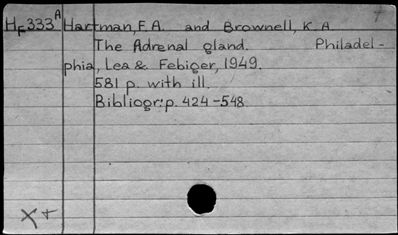 HF333A Hartman, F.A. and Brownell, K.A
The Adrenal gland. Philadel-
phia, Lea & Febiger, 1949.
581 p. with ill.
Bibliogr: p. 424-548
X+